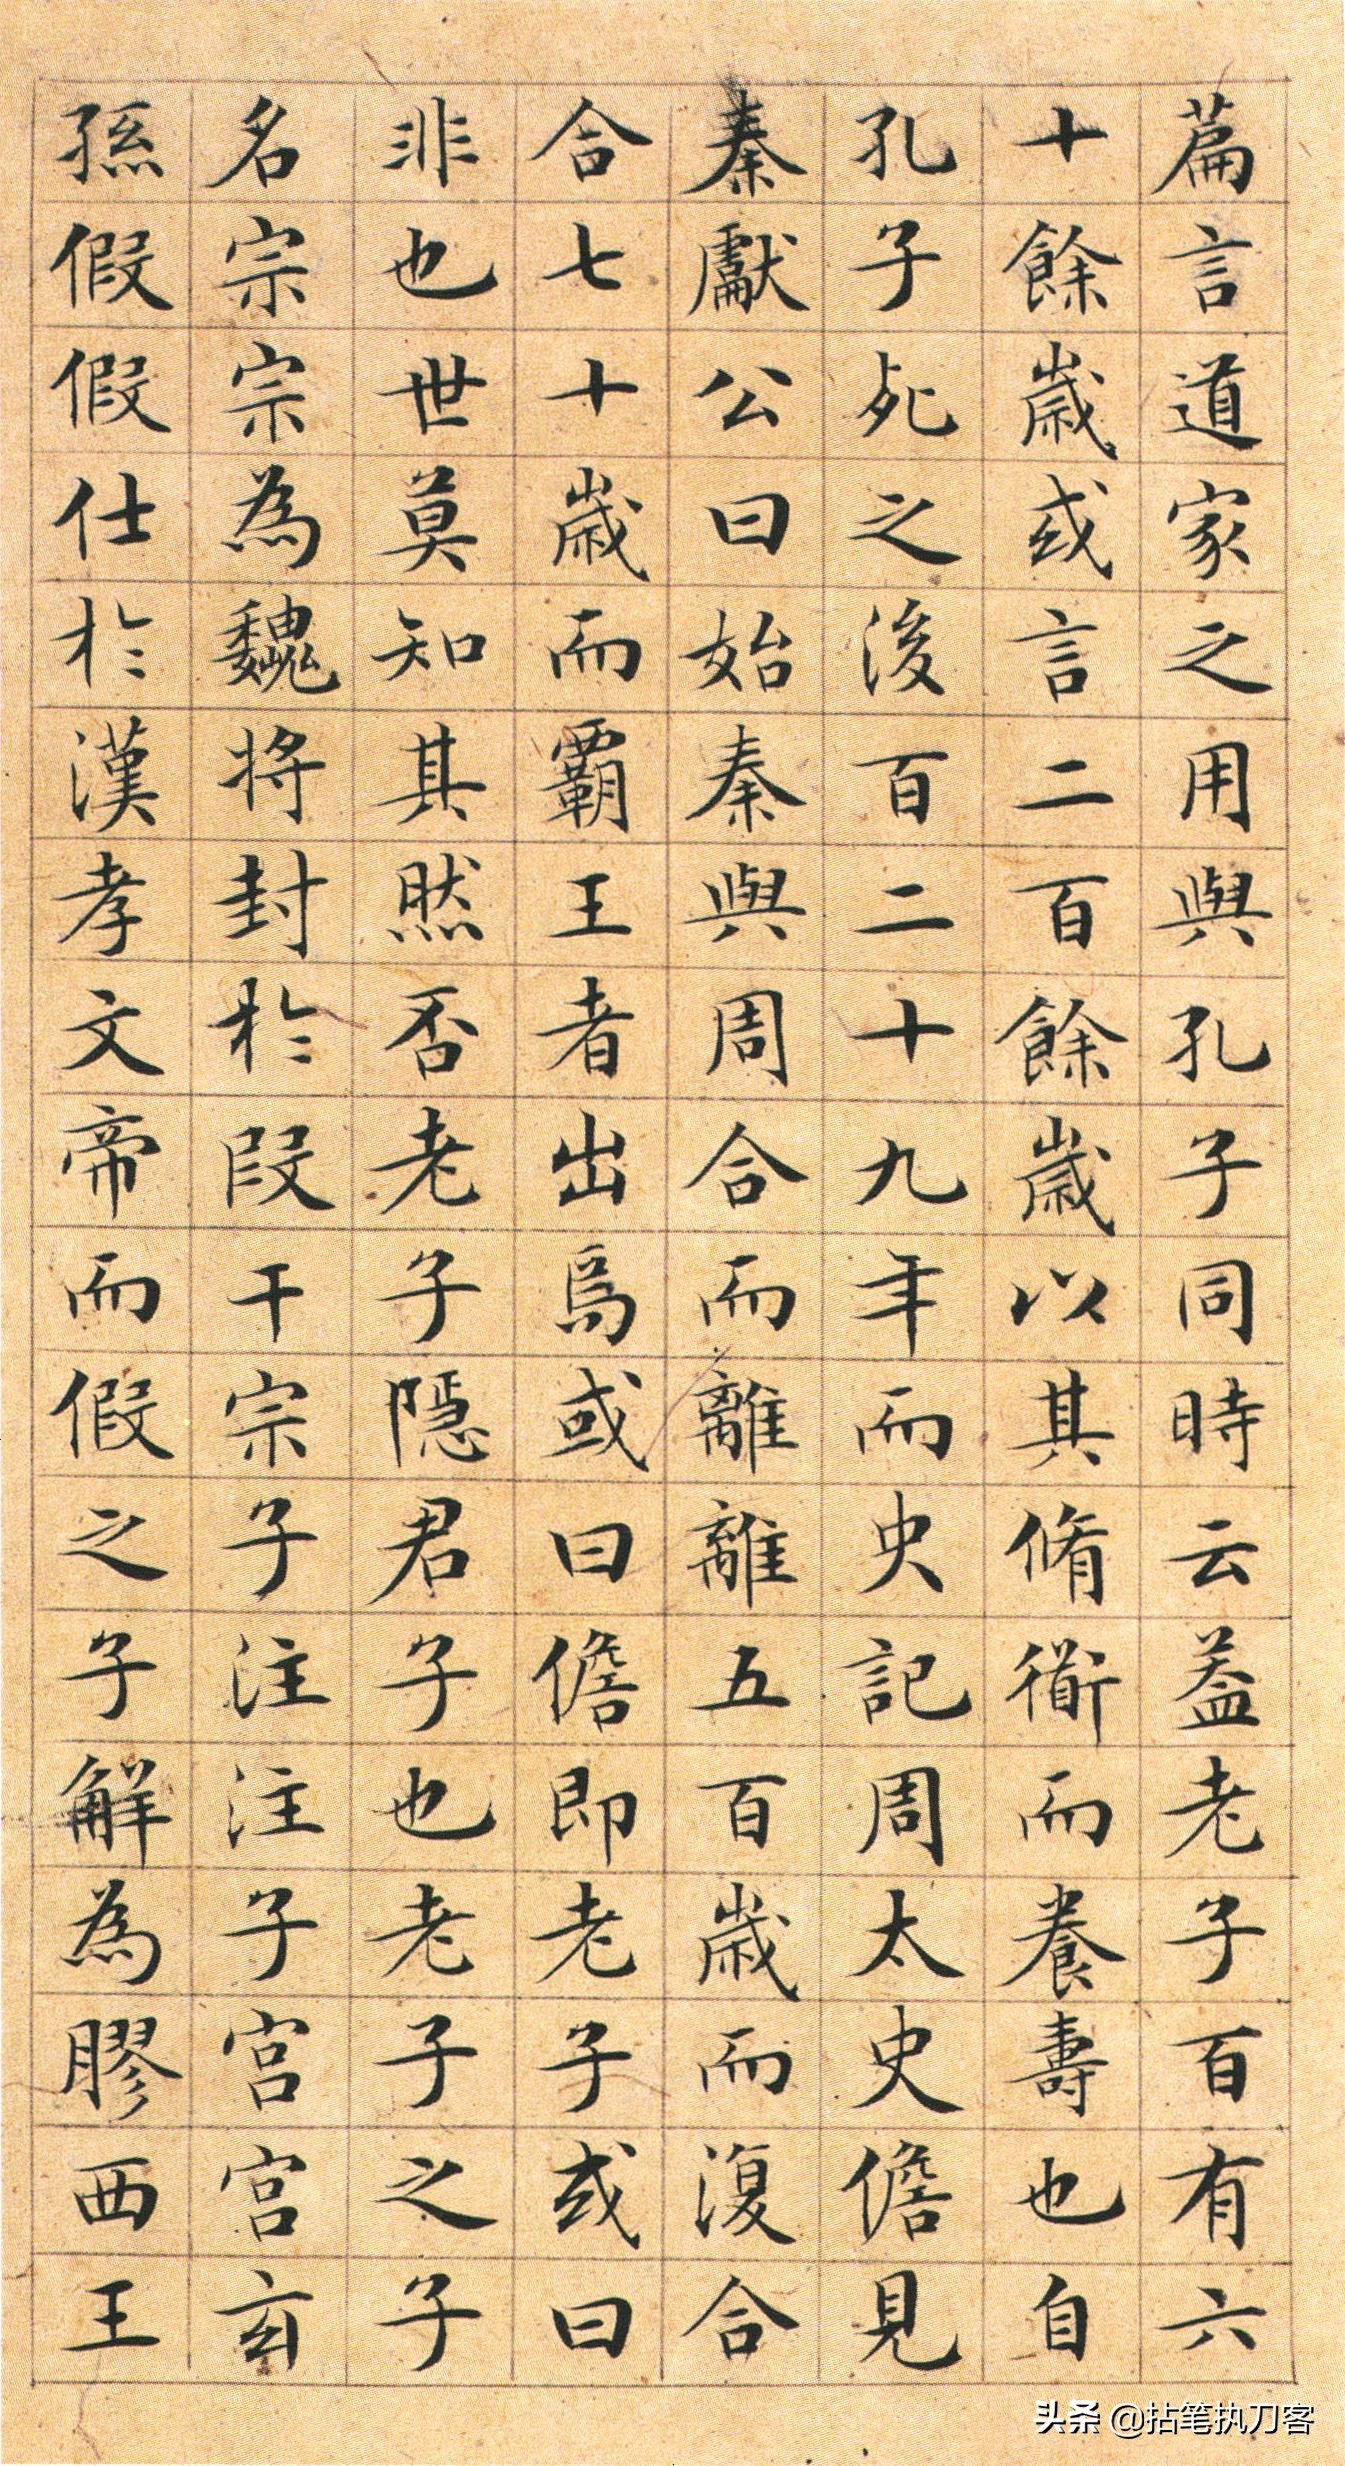 篇言道家之用與孔子同時云葢老子百有六
十餘歲或言二百餘歲以其脩衟而養壽也自
孔子死之後百二十九年而史記周太史儋見
秦獻公曰始秦與周合而離離五百歲而復合
合七十歲而霸王者出焉或曰儋即老子或曰
非也世莫知其然否老子隱君子也老子之子
名宗宗為魏將封於段干宗子注注子宮宮玄
孫假假仕於漢孝文帝而假之子解為膠西王
头条 @拈笔执刀客